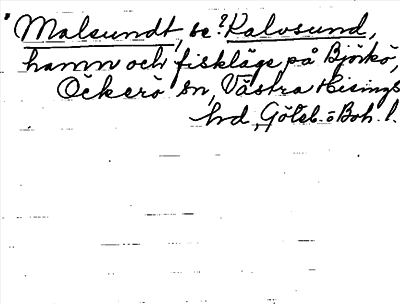 "Malsundt, se? Kalvsund,
hamn och fiskläge på Björkö,
Öckerö sn, Västra Hisings
hd, Göteb. o Boh. l.